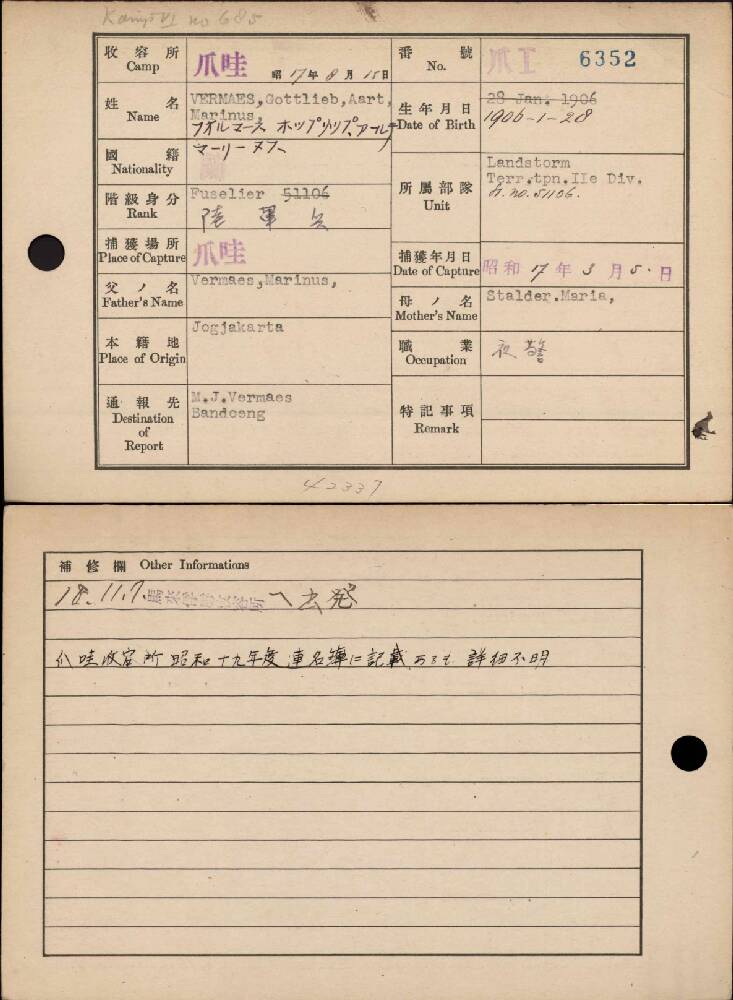 Kamp VI no 685
收容所 Camp 爪哇 昭17年8月15日
番號 No. 爪I 6352
姓名 Name VERMAES,Gottlieb,Aart,
Marinus,
フオルマース ホツプリツプ、アールチ
マーリーヌス
生年月日 Date of Birth 28 Jan. 1906
1906-1-28
國籍 Nationality 蘭
階級身分 Rank Fuselier 51106
陸軍兵
所屬部隊 Unit Landstorm
Terr.tpn.IIe Div.
St.no.51106.
捕獲場所 Place of Capture 爪哇
捕獲年月日 Date of Capture 昭和17年3月5日
父ノ名 Father's Name Vermaes,Marinus,
母ノ名 Mother's Name Stalder.Maria,
本籍地 Place of Origin Jogjakarta
職業 Occupation 夜警
通報先 Destination of Report M.J.Vermaes
Bandoeng
特記事項 Remark
42337
補修欄 Other Informations
18.11.7. 馬來俘虜收容所へ出発
爪哇收容所昭和十九年度連名簿に記載あるも詳細不明